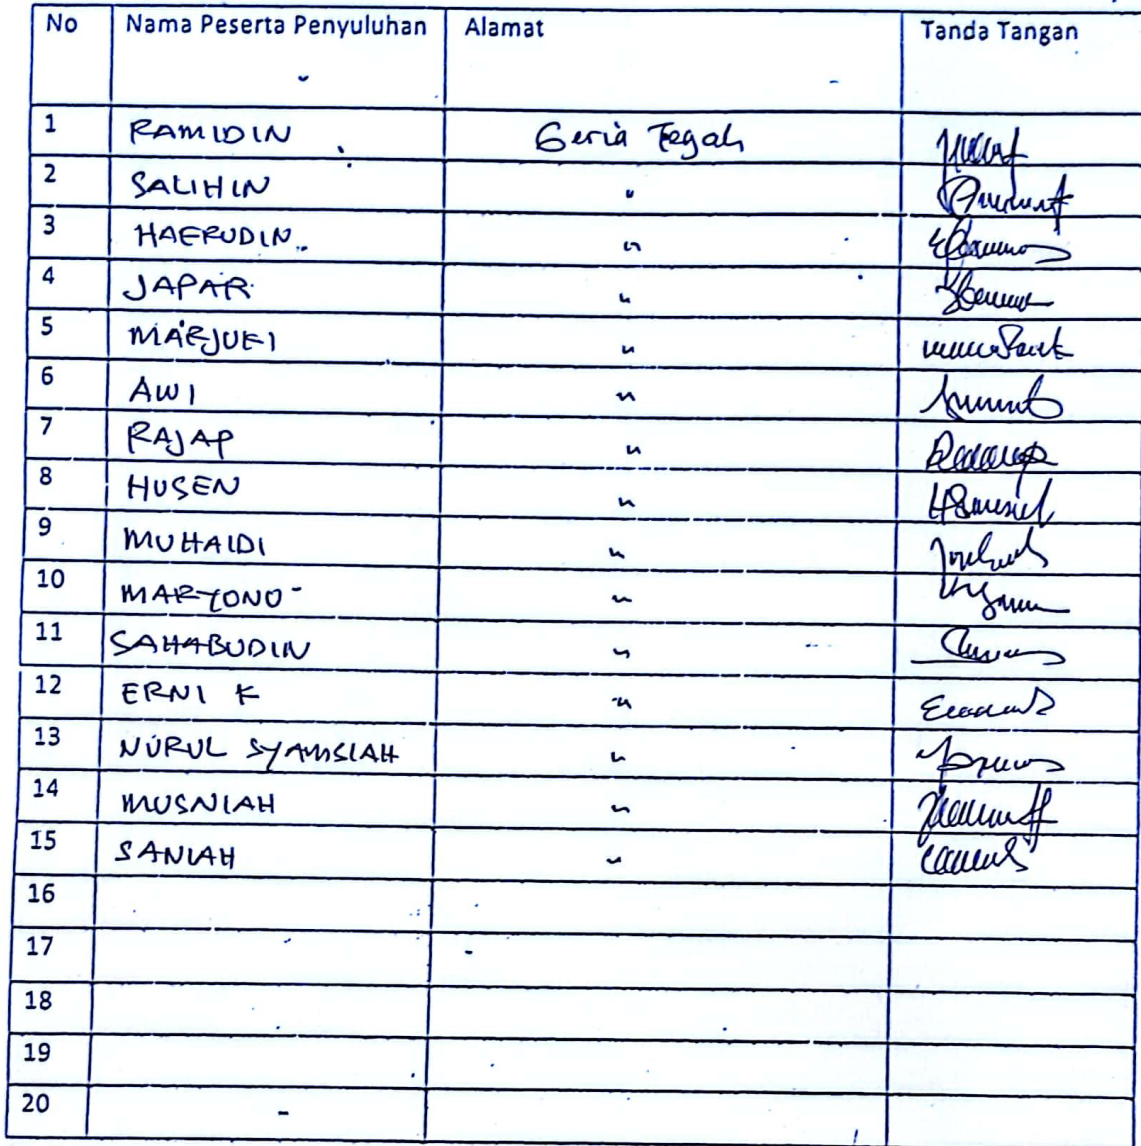 No Nama Peserta Penyuluhan Alamat Tanda Tangan
1 RAMIDIN Geria Tegah
2 SALIHIN "
3 HAERUDIN "
4 JAPAR "
5 MARJUKI "
6 AWI "
7 RAJAP "
8 HUSEN "
9 MUHAIDI "
10 MARYONO "
11 SAHABUDIN "
12 ERNI K "
13 NURUL SYAMSIAH "
14 MUSNIAH "
15 SANIAH "
16
17
18
19
20